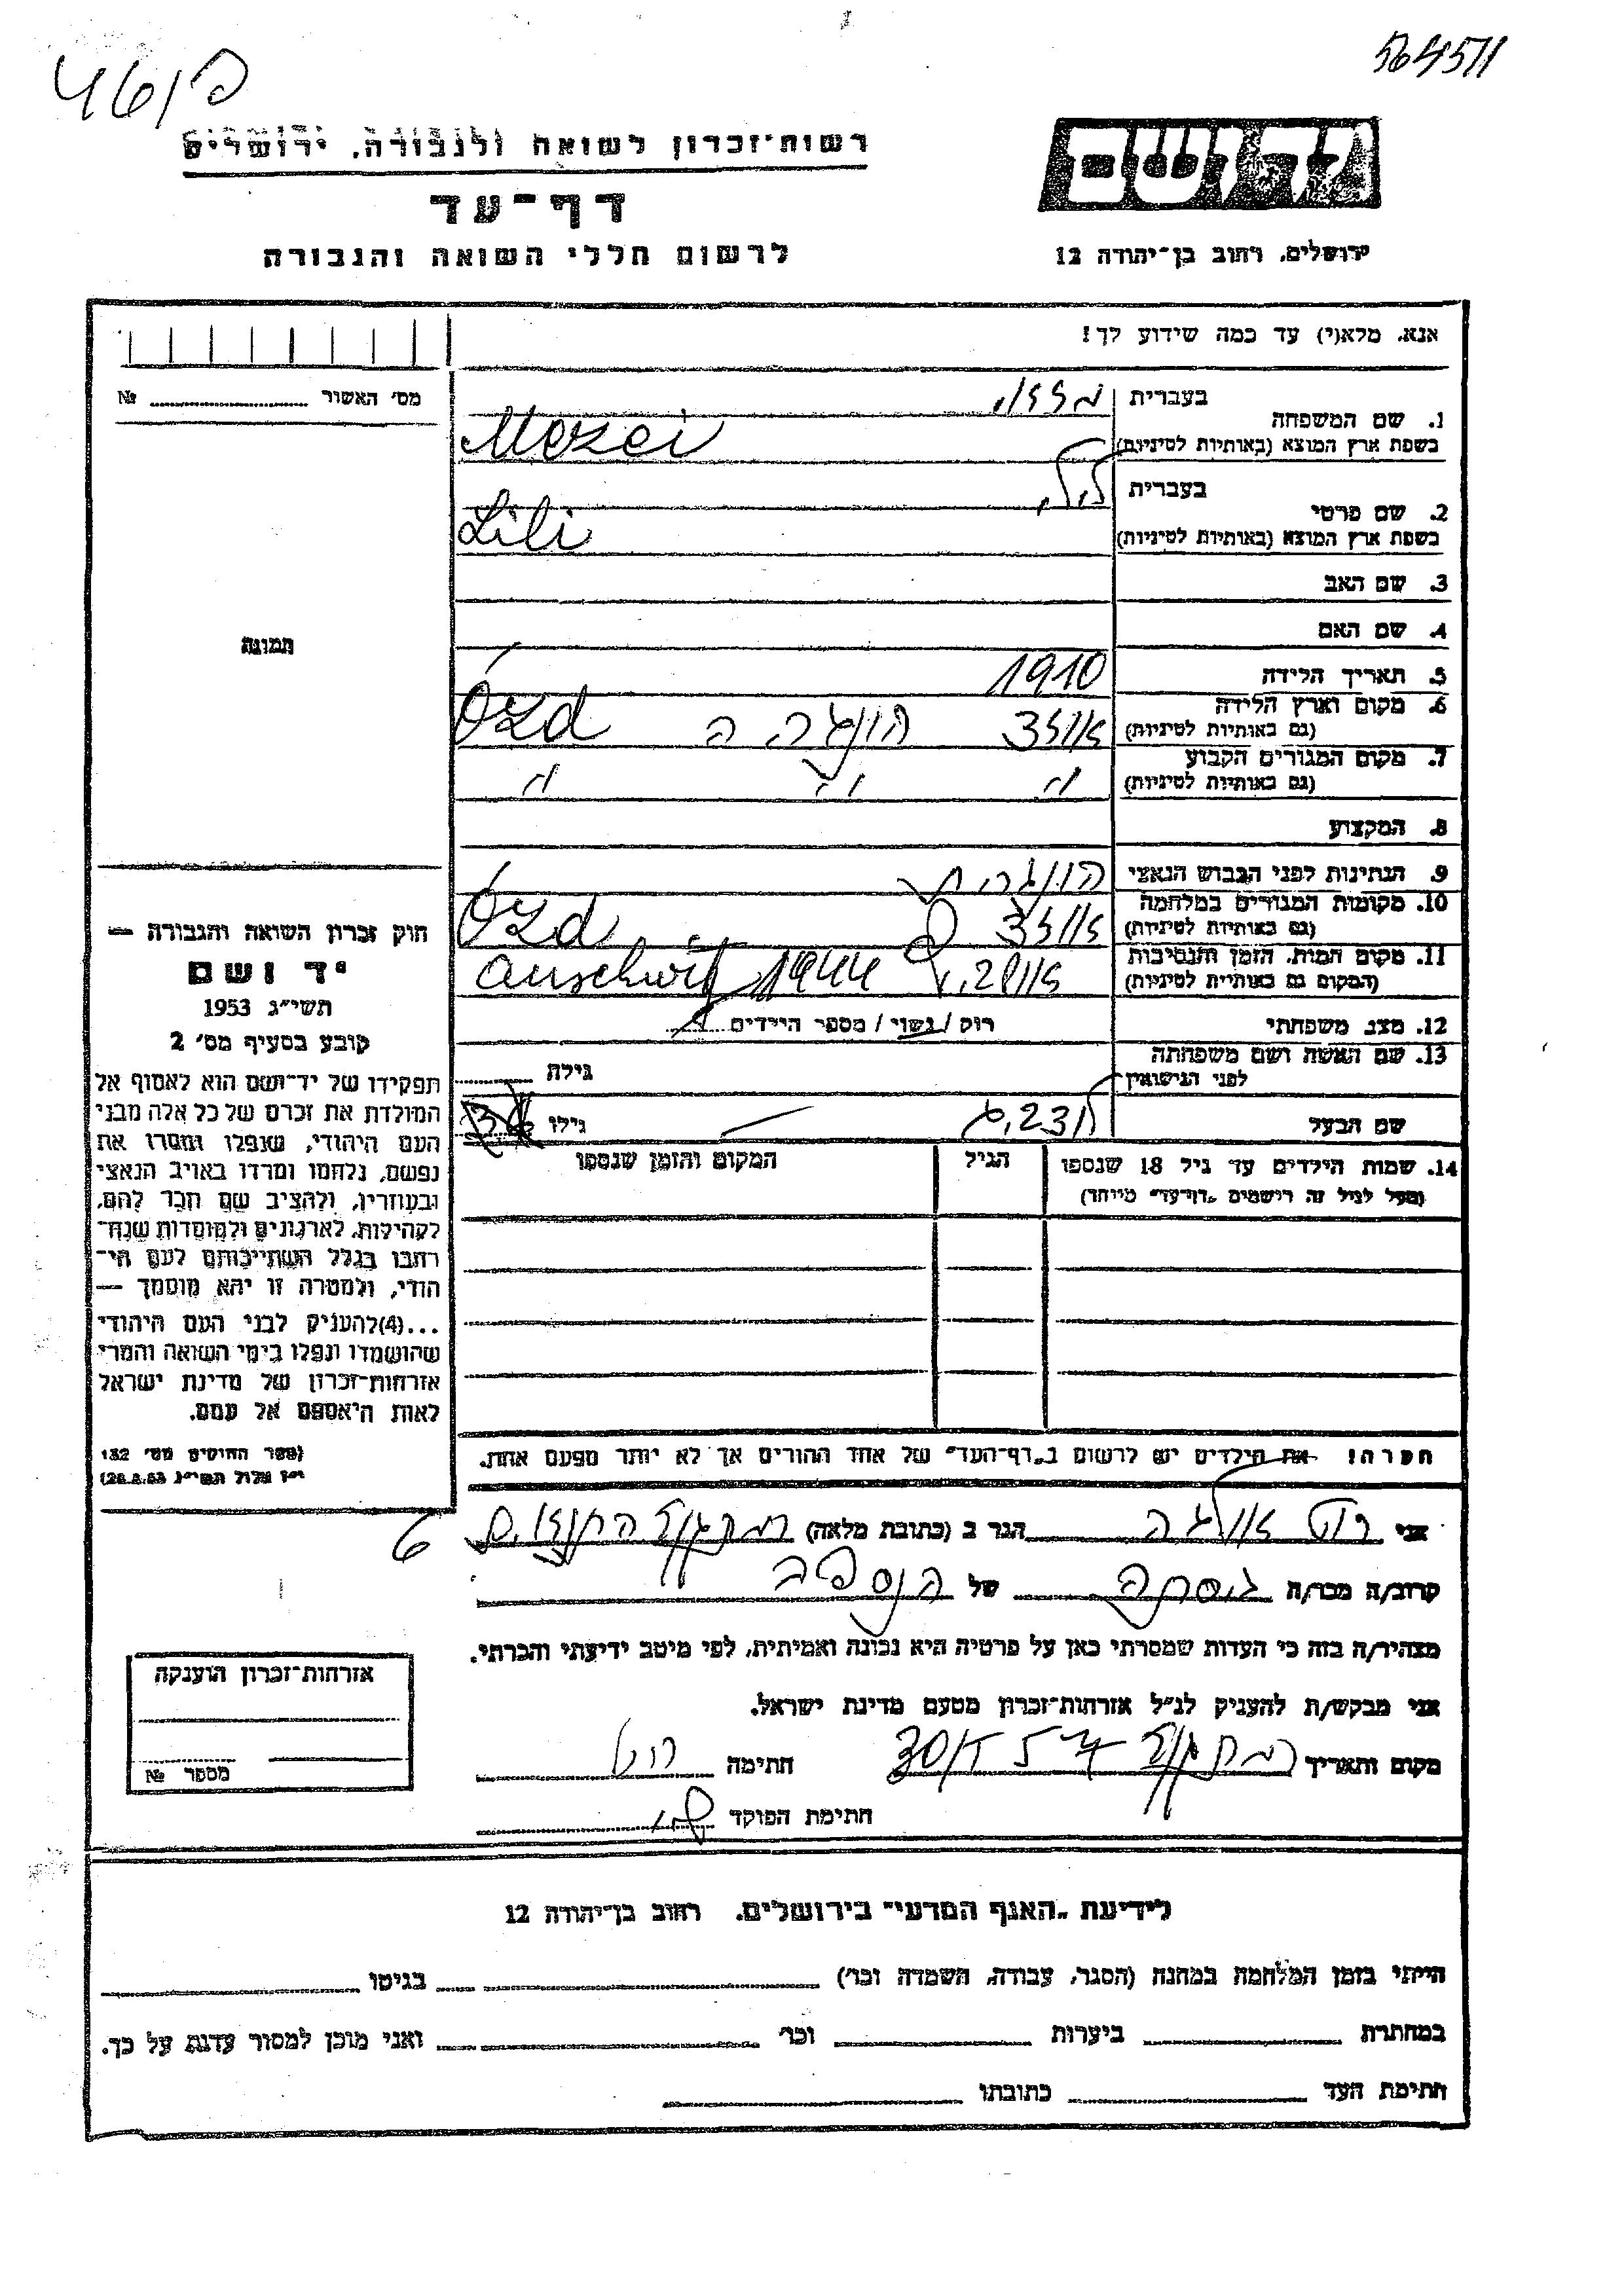 564511
רשות־זכרון לשואה ולגבורה, ירושלים
יד ושם
דף־עד
לרשום חללי השואה והגבורה
ירושלים, רחוב בן־יהודה 12
אנא, מלא(י) עד כמה שידוע לך!
מס׳ האשור № 
1. שם המשפחה
בעברית
בשפת ארץ המוצא (באותיות לטיניות) Mezei
2. שם פרטי
בעברית לילי
בשפת ארץ המוצא (באותיות לטיניות) Lili
3. שם האב
4. שם האם
תמונה
5. תאריך הלידה 1910
6. מקום וארץ הלידה
(גם באותיות לטיניות) אוזד הונגריה Ózd
7. מקום המגורים הקבוע
(גם באותיות לטיניות) " " "
8. המקצוע
9. הנתינות לפני הכבוש הנאצי הונגרית
10. מקומות המגורים במלחמה
(גם באותיות לטיניות) אוזד Ózd
11. מקום המות, הזמן והנסיבות
(המקום גם באותיות לטיניות) 1944
12. מצב משפחתי רוק / נשוי / מספר הילדים
13. שם האשה ושם משפחתה
לפני הנישואין גילה
שם הבעל גילו
14. שמות הילדים עד גיל 18 שנספו הגיל המקום והזמן שנספו
(מעל לגיל זה רישמים „דף־עד״ מיוחד)
חוק זכרון השואה והגבורה —
יד ושם
תשי״ג 1953
קובע בסעיף מס׳ 2
תפקידו של יד־ושם הוא לאסוף אל
המולדת את זכרם של כל אלה מבני
העם היהודי, שנפלו ומסרו את
נפשם, נלחמו ומרדו באויב הנאצי
ובעוזריו, ולהציב שם וזכר להם,
לקהילות, לארגונים ולמוסדות שנח־
רבו בגלל השתייכותם לעם הי־
הודי, ולמטרה זו יהא מוסמך —
...(4)להעניק לבני העם היהודי
שהושמדו ונפלו בימי השואה והמרי
אזרחות־זכרון של מדינת ישראל
לאות היאספם אל עמם.
(ספר החוקים מס׳ 132
י״ז אלול תשי״ג 28.8.53)
הערה! את הילדים יש לרשום ב„דף־העד״ של אחד ההורים אך לא יותר מפעם אחת.
אני הגר ב (כתובת מלאה)
קרוב/ה מכר/ה של
מצהיר/ה בזה כי העדות שמסרתי כאן על פרטיה היא נכונה ואמיתית, לפי מיטב ידיעתי והכרתי.
אני מבקש/ת להעניק לנ״ל אזרחות־זכרון מטעם מדינת ישראל.
מקום ותאריך חתימה
חתימת הפוקד
אזרחות־זכרון הוענקה
מספר №
לידיעת „האגף המדעי״ בירושלים, רחוב בן־יהודה 12
הייתי בזמן המלחמה במחנה (הסגר, עבודה, השמדה וכו׳) בגיטו
במחתרת ביערות וכו׳ ואני מוכן למסור עדות על כך.
חתימת העד כתובתו